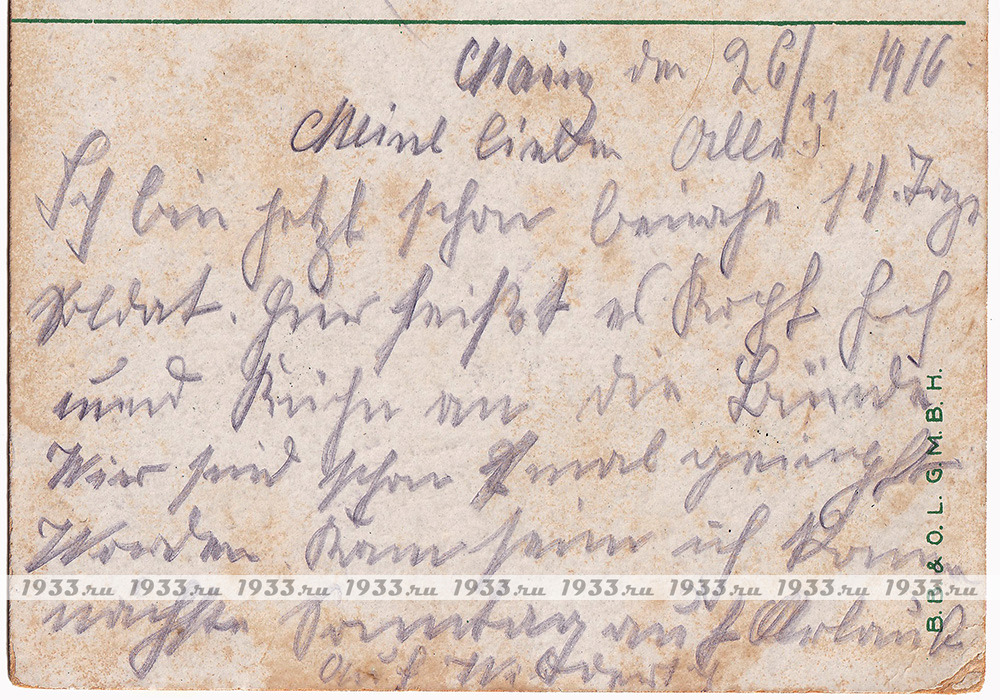 Mainz den 26/11 1916
Meine lieben Alle!!
Ich bin jetzt schon beinahe 14. Tage
Soldat. Hier heißt es Kopf hoch
und an die
Wir sind schon mal geimpft
Worden kann sein ich kom
nächste Sonntag auf Urlaub
Auf
B. B. & O. L. G. M. B. H.
1933.ru 1933.ru 1933.ru 1933.ru 1933.ru 1933.ru 1933.ru 1933.ru 1933.ru